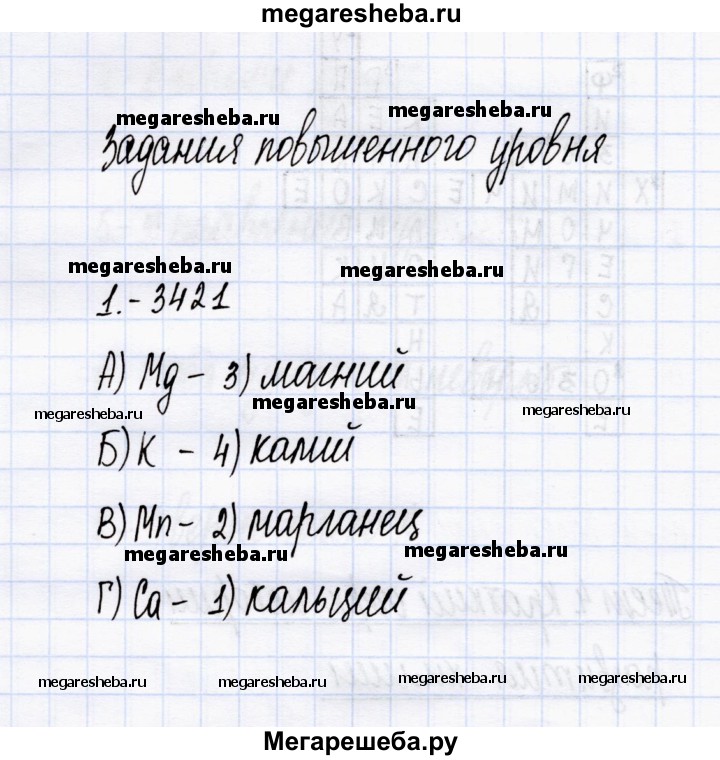 megaresheba.ru
megaresheba.ru megaresheba.ru
Задания повышенного уровня
megaresheba.ru megaresheba.ru
1.- 3421
А) Mg - 3) магний
megaresheba.ru megaresheba.ru megaresheba.ru
Б) K - 4) калий
В) Mn - 2) марганец
megaresheba.ru megaresheba.ru
Г) Ca - 1) кальций
megaresheba.ru megaresheba.ru megaresheba.ru megaresheba.ru
Мегарешеба.ру